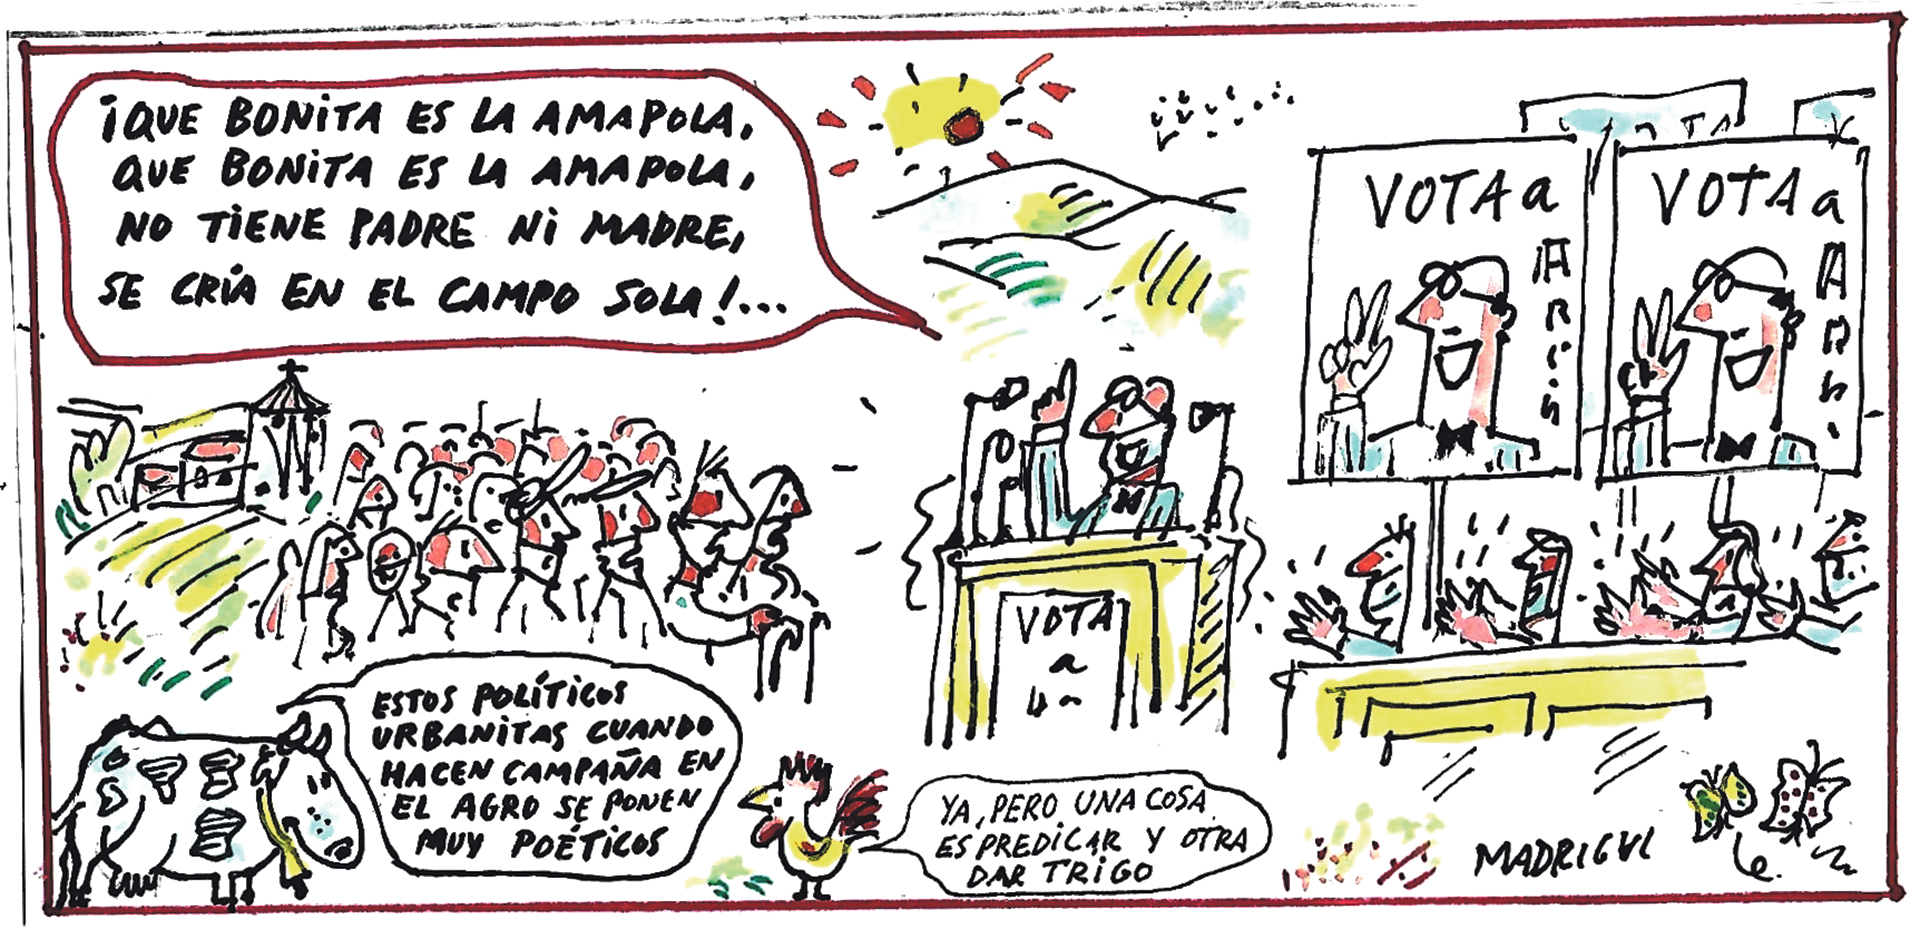 ¡QUE BONITA ES LA AMAPOLA,
QUE BONITA ES LA AMAPOLA,
NO TIENE PADRE NI MADRE,
SE CRÍA EN EL CAMPO SOLA!...
VOTA a
VOTA a
VOTA
a
ESTOS POLÍTICOS
URBANITAS CUANDO
HACEN CAMPAÑA EN
EL AGRO SE PONEN
MUY POÉTICOS
YA, PERO UNA COSA
ES PREDICAR Y OTRA
DAR TRIGO
MADRIGUL